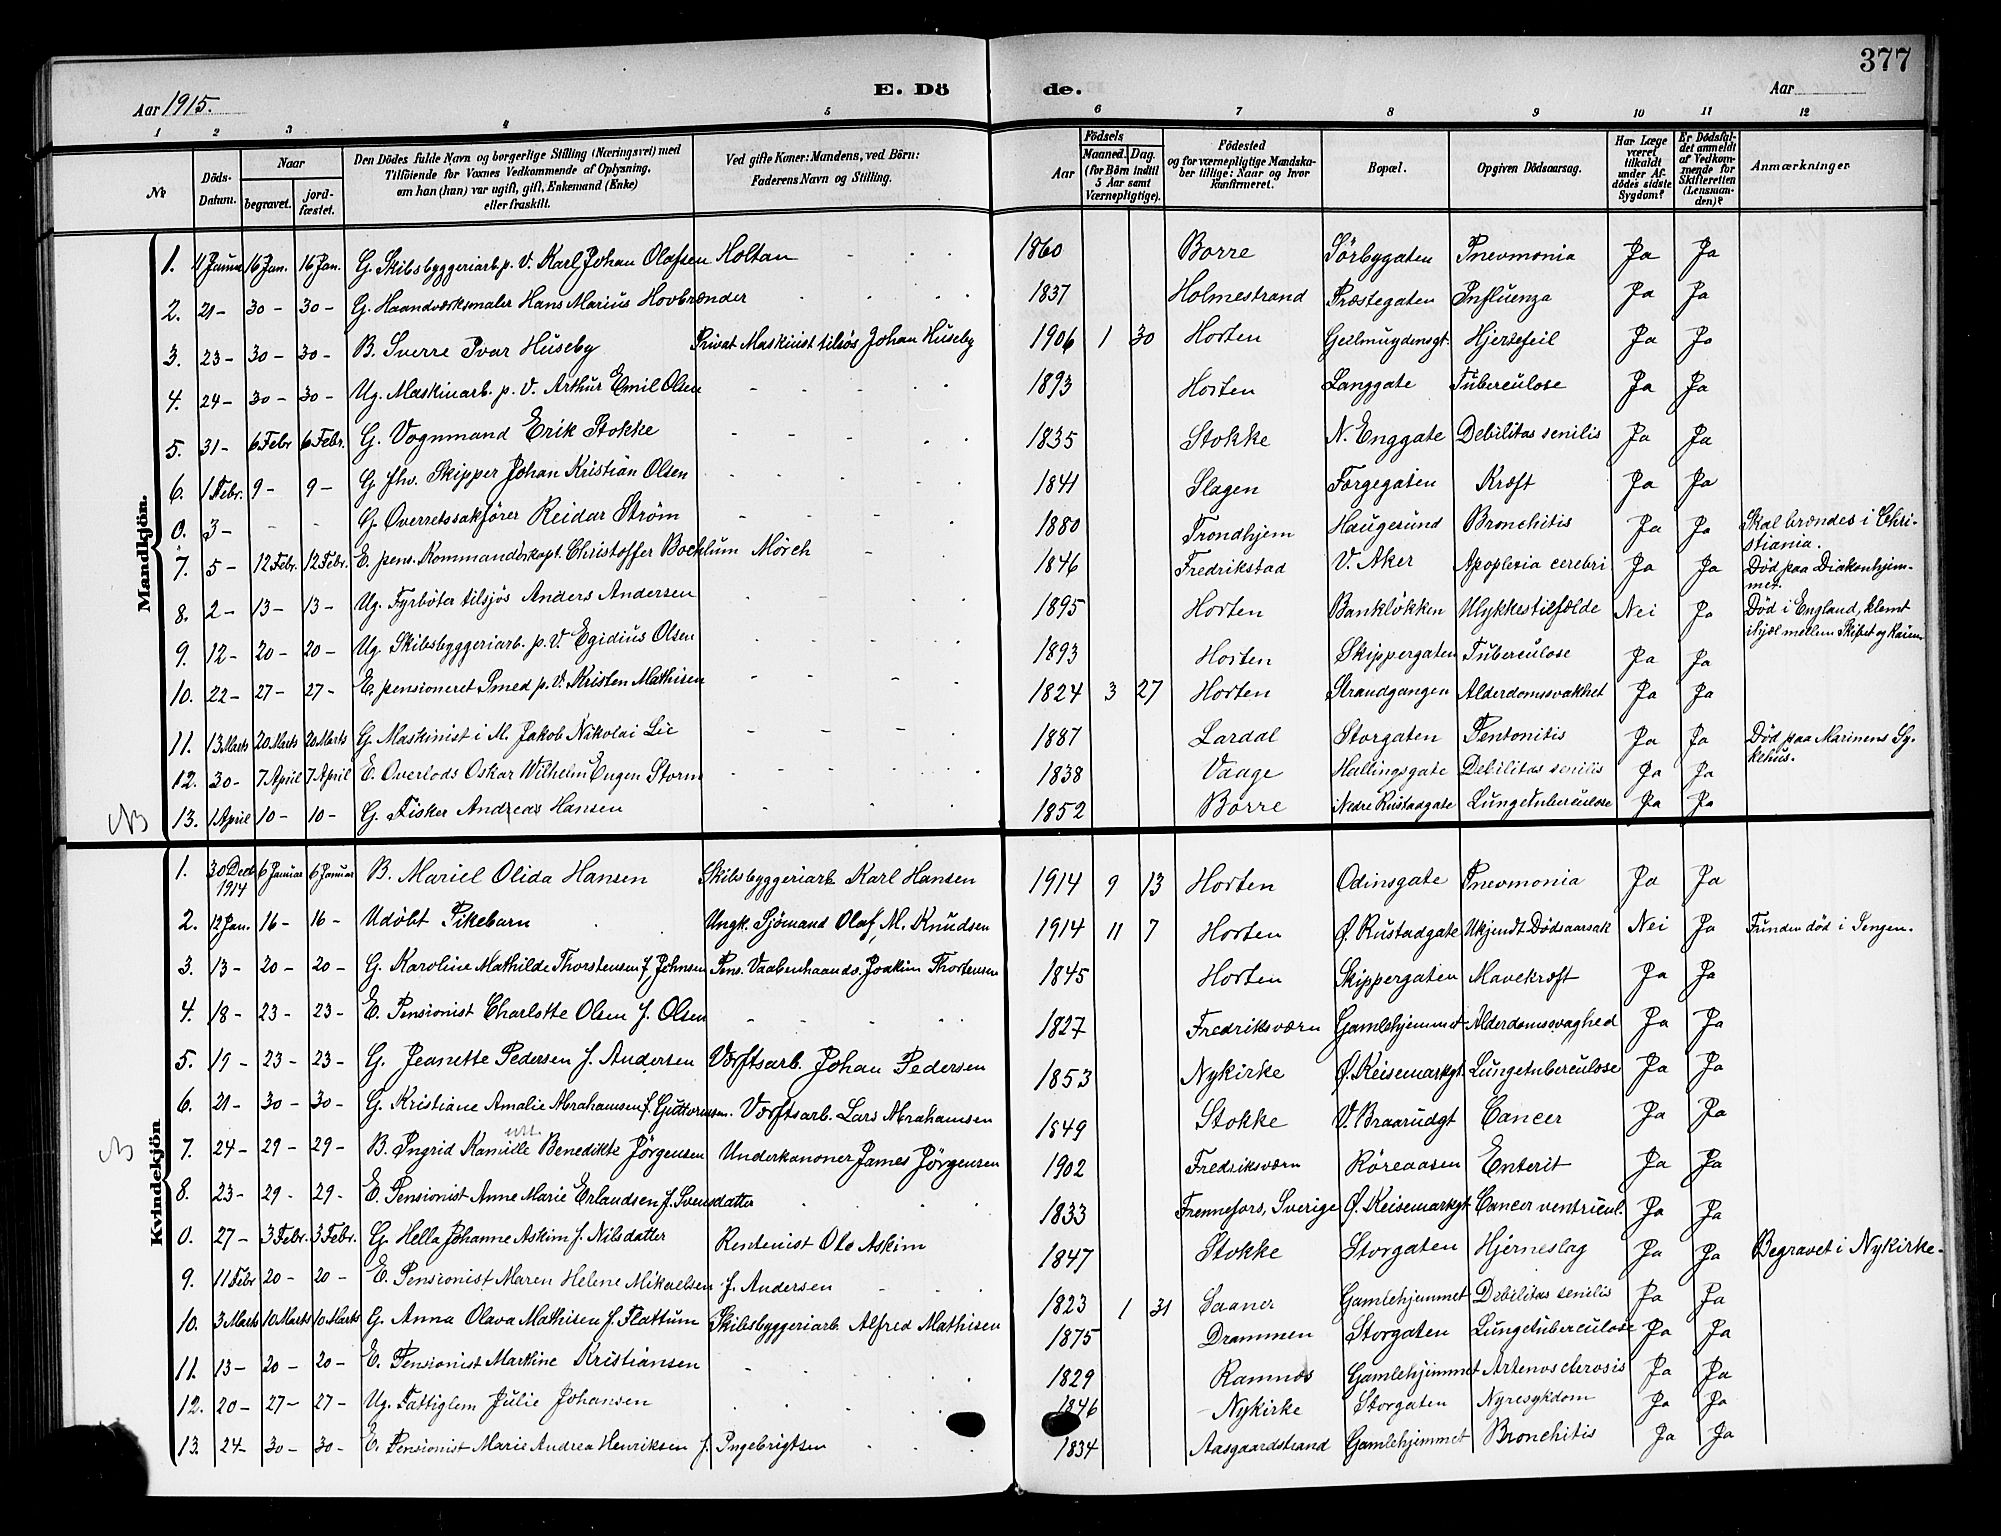 377
Aar 1915.
E. Dö de.
Aar
1 2 3 4 5 6 7 8 9 10 11 12
No
Döds-Datum.
Naar
begravet.
jord-fæstet.
Den Dödes fulde Navn og borgerlige Stilling (Næringsvei) med
Tilföiende for Voxnes Vedkommende af Oplysning,
om han (hun) var ugift, gift, Enkemand (Enke)
eller fraskilt.
Ved gifte Koner: Mandens, ved Börn:
Faderens Navn og Stilling.
Födsels
Aar
Maaned. Dag.
(for Börn indtil
5 Aar samt
Værnepligtige).
Födested
og for værnepligtige Mandska-
ber tillige: Naar og hvor
konfirmeret.
Bopæl.
Opgiven Dödsaarsag.
Har Læge
været
tilkaldt
under Af-
dödes sidste
Sygdom?
Er Dödsfal-
det anmeldt
af Vedkom-
mende for
Skifteretten
(Lensman-
den)?
Anmærkninger
Mandkjön.
1. 11 Januar 16 Jan. 16 Jan. G. Skibsbyggeriarb. p. V. Karl Johan Olafsen Holtan 1860 Borre Sörbygaten Pnevmonia Ja Ja
2. 21 - 30 - 30 - G. Haandværksmaler Hans Marius Hovbrænder 1837 Holmestrand Præstegaten Influenza Ja Ja
3. 23 - 30 - 30 - B. Sverre Ivar Huseby Privat Maskinist tilsjös Johan Huseby 1906 1 30 Horten Geelmuydensgt. Hjertefeil Ja Ja
4. 24 - 30 - 30 - Ug. Maskinarb. p. V. Arthur Emil Olsen 1893 Horten Langgate Tuberculose Ja Ja
5. 31 - 6 Febr 6 Febr. G. Vognmand Erik Stokke 1835 Stokke N. Enggate Debilitas senilis Ja Ja
6. 1 Febr. 9 - 9 - G. fhv. Skipper Johan Kristian Olsen 1841 Slagen Færgegaten Kræft Ja Ja
0. 3 - - - G. Overretssakförer Reidar Ström 1880 Trondhjem Haugesund Bronchitis Ja Ja Skal brændes i Christiania.
7. 5 - 12 Febr. 12 Febr. E. pens. Kommandörkapt. Christoffer Bochlum Mörch 1846 Fredrikstad V. Aker Apoplexia cerebri Ja Ja Död paa Diakonhjemmet.
8. 2 - 13 - 13 - Ug. Fyrböter tilsjös Anders Andersen 1895 Horten Banklökken Ulykkestilfælde Nei Ja Död i England, klemt ihjel mellem Skibet og Kaien.
9. 12 - 20 - 20 - Ug. Skibsbyggeriarb. p. V. Egidius Olsen 1893 Horten Skippergaten Tuberculose Ja Ja
10. 22 - 27 - 27 - E. pensioneret Smed p. V. Kristen Mathisen 1824 3 27 Horten Strandgangen Alderdomssvakhet Ja Ja
11. 13 Marts 20 Marts 20 Marts G. Maskinist i M. Jakob Nikolai Lie 1887 Lardal Storgaten Peritonitis Ja Ja Död paa Marinens Sykehus.
12. 30 - 7 April 7 April E. Overlods Oskar Wilhelm Eugen Storm 1838 Vaage Hallingsgate Debilitas senilis Ja Ja
NB 13. 1 April 10 - 10 - G. Fisker Andreas Hansen 1852 Borre Nedre Rustadgate Lungetuberculose Ja Ja
Kvindekjön
1. 30 Decb 1914 6 Januar 6 Januar B. Mariel Olida Hansen Skibsbyggeriarb. Karl Hansen 1914 9 13 Horten Odinsgate Pnevmonia Ja Ja
2. 12 Jan. 16 - 16 - Udöbt Pikebarn Ungk. Sjömand Olaf M. Knudsen 1914 11 7 Horten Ø. Rustadgate Ukjendt Dödsaarsak Nei Ja Funden död i Sengen.
3. 13 - 20 - 20 - G. Karoline Mathilde Thorstensen f. Johnsen Pens. Vaabenhaandv. Joakim Thortensen 1845 Horten Skippergaten Mavekræft Ja Ja
4. 18 - 23 - 23 - E. Pensionist Charlotte Olsen f. Olsen 1827 Fredriksværn Gamlehjemmet Alderdomssvaghed Ja Ja
5. 19 - 23 - 23 - G. Jeanette Pedersen f. Andersen Værftsarb. Johan Pedersen 1853 Nykirke Ø. Keisemarkgt Lungetuberculose Ja Ja
6. 21 - 30 - 30 - G. Kristiane Amalie Abrahamsen f. Guttormsen. Værftsarb. Lars Abrahamsen 1849 Stokke V. Braarudgt Cancer Ja Ja
NB 7. 24 - 29 - 29 - B. Ingrid Kamille Benedikte Jörgensen Underkanoner James Jörgensen 1902 Fredriksværn Röreaasen Enterit Ja Ja
8. 23 - 29 - 29 - E. Pensionist Anne Marie Erlandsen f. Svensdatter 1833 Frennefors, Sverige Ø. Keisemarkgt Cancer ventricul. Ja Ja
0. 27 - 3 Febr. 3 Febr. G. Hella Johanne Askim f. Nilsdatter Rentenist Ole Askim 1847 Stokke Storgaten Hjerneslag Ja Ja Begravet i Nykirke.
9. 11 Febr 20 - 20 - E. Pensionist Maren Helene Mikaelsen f. Andersen 1823 1 31 Saaner Gamlehjemmet Debilitas senilis Ja Ja
10. 3 Marts 10 Marts 10 Marts G. Anna Olava Mathisen f. Flattum Skibsbyggeriarb. Alfred Mathisen 1875 Drammen Storgaten Lungetuberculose Ja Ja
11. 13 - 20 - 20 - E. Pensionist Martine Kristiansen 1829 Ramnæs Gamlehjemmet Arteriosclerosis Ja Ja
12. 20 - 27 - 27 - Ug. Fattiglem Julie Johansen 1846 Nykirke Storgaten Nyresykdom Ja Ja
13. 24 - 30 - 30 - E. Pensionist Marie Andrea Henriksen f. Ingebrigtsen 1834 Aasgaardstrand Gamlehjemmet Bronchitis Ja Ja